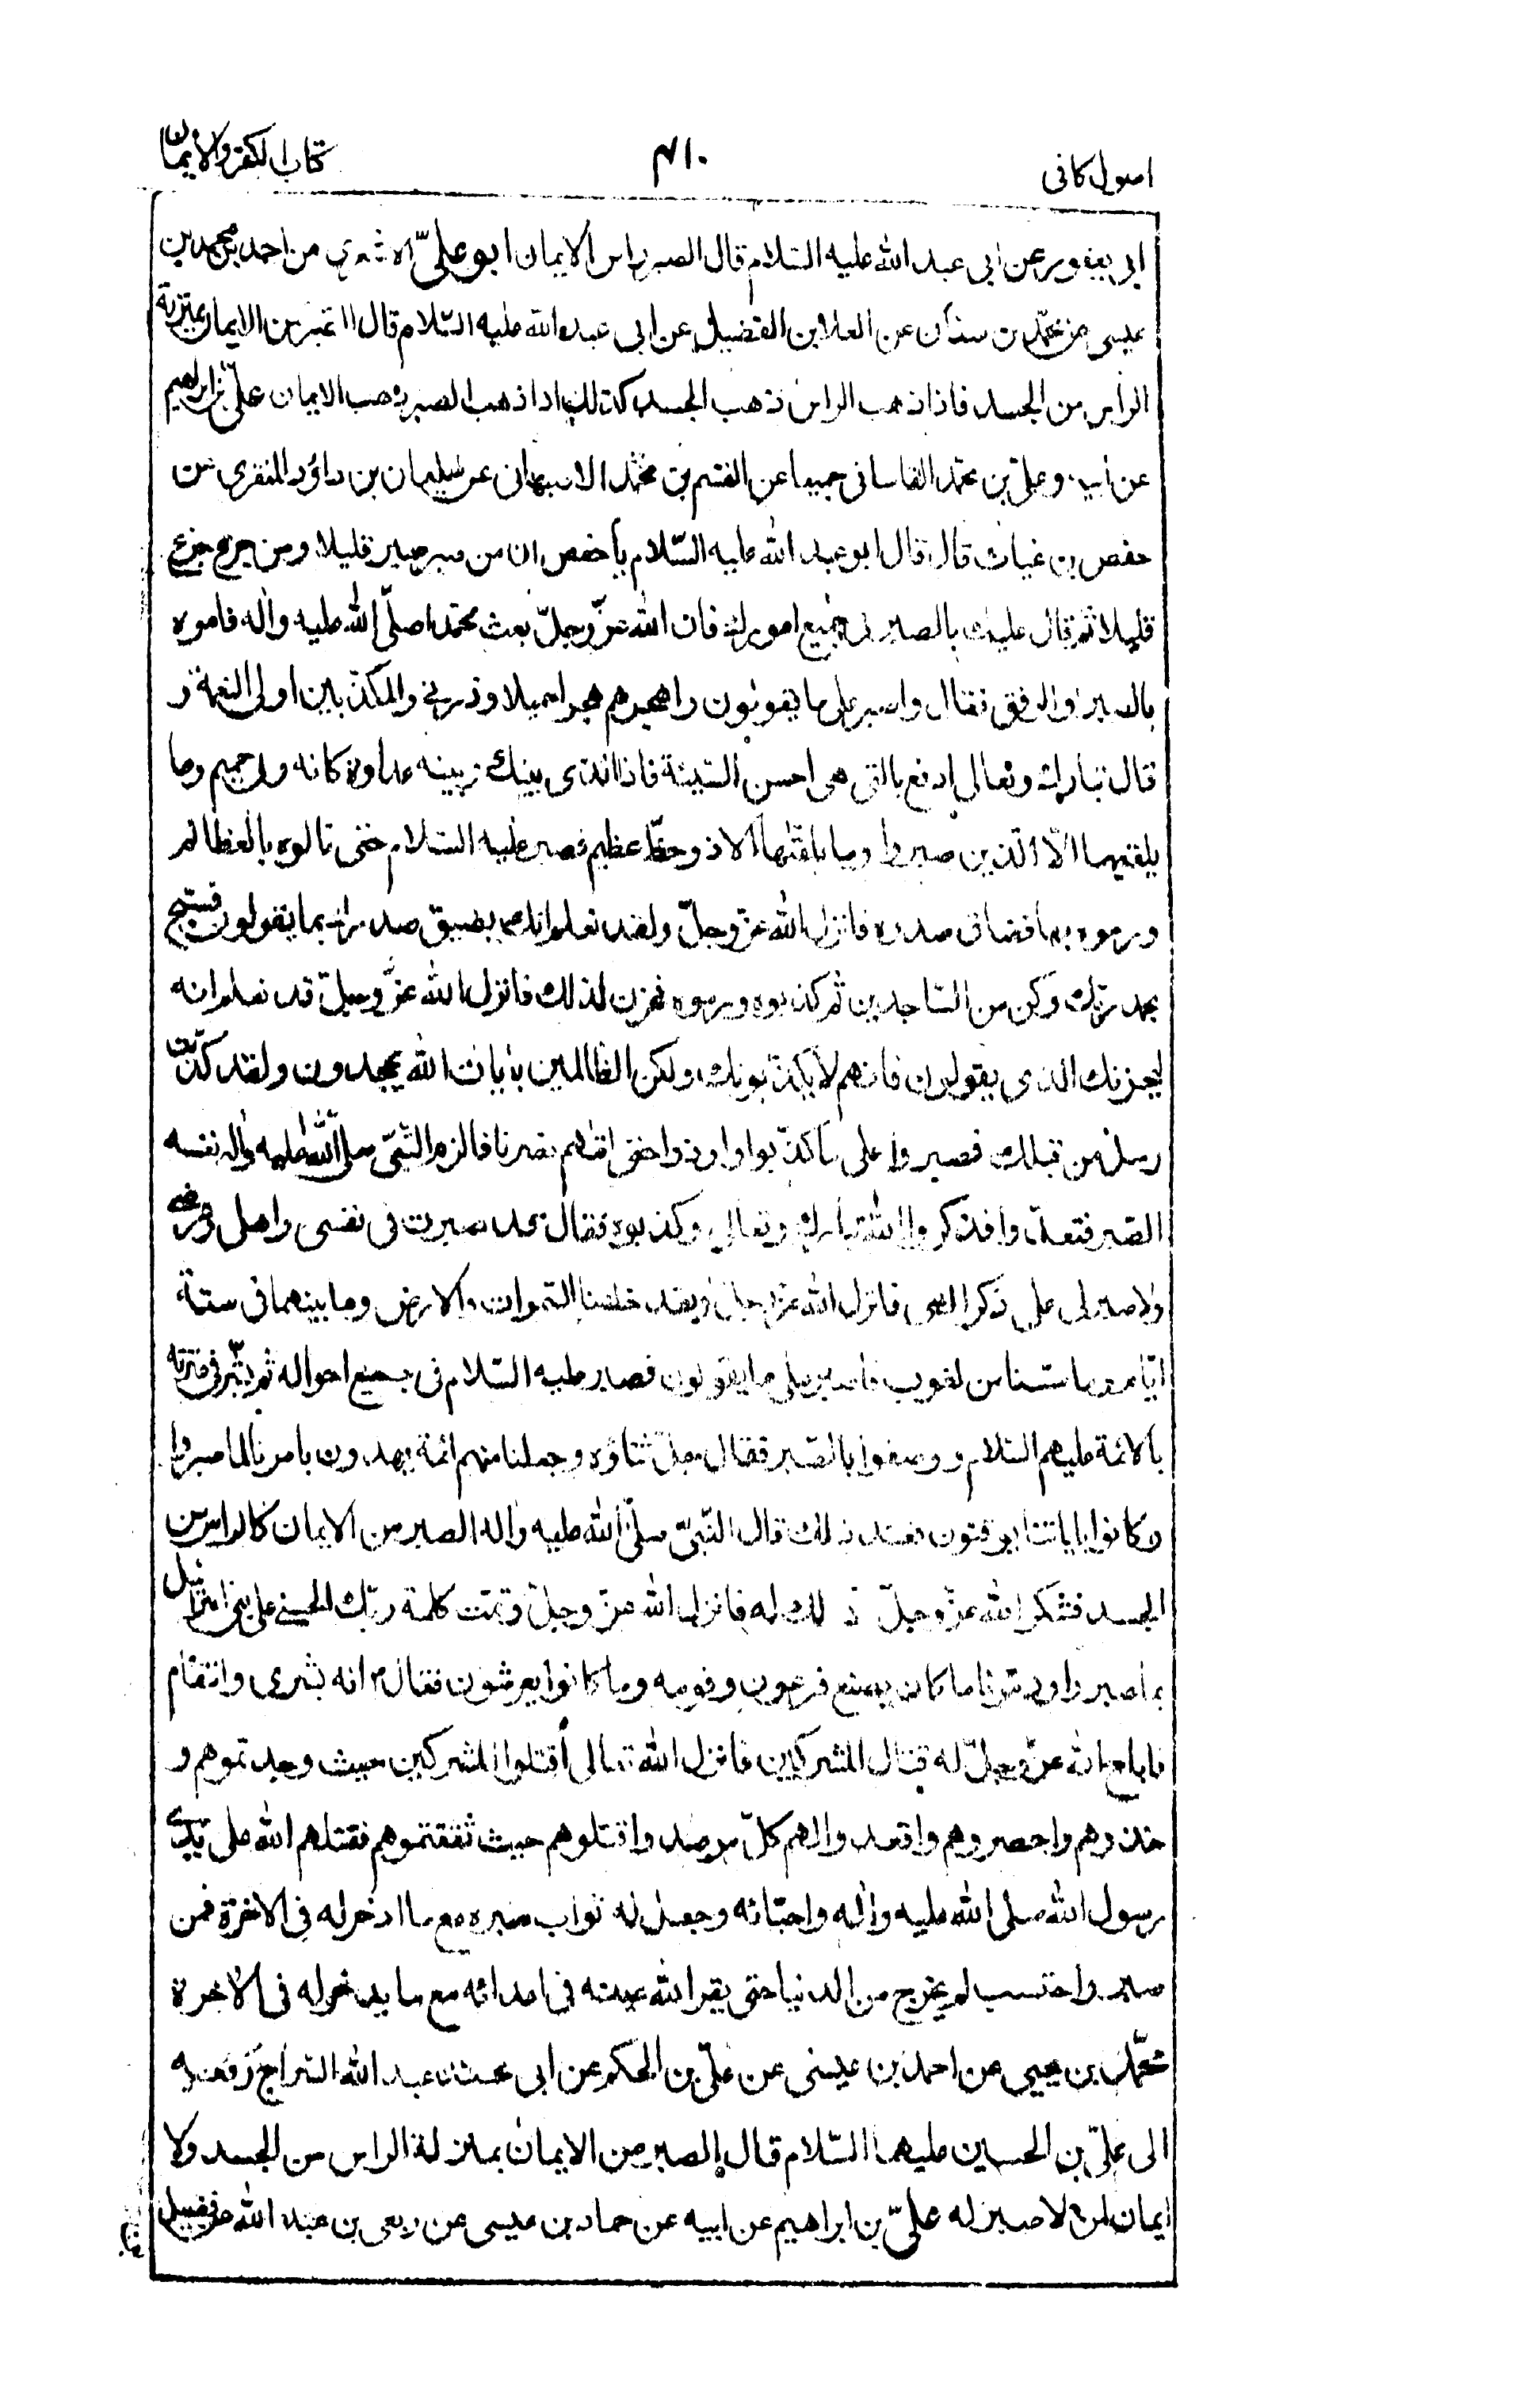 اصول كافى
٤١٠
كتاب الكفر والايمان
ابى يعفور عن ابى عبد الله عليه السّلام قال الصبر راس الايمان ابو علىّ الاشعري عن احمد بن محمد بن
عيسى عن محمّد بن سنان عن العلا بن الفضيل عن ابى عبد الله عليه السّلام قال الصبر من الايمان بمنزلة
الراس من الجسد فاذا ذهب الراس ذهب الجسد كذلك اذا ذهب الصبر ذهب الايمان علىّ بن ابراهيم
عن ابيه وعلى بن محمّد القاسانى جميعا عن القسم بن محمّد الاصبهانى عن سليمان بن داؤد المنقرى عن
حفص بن غياث قال قال ابو عبد الله عليه السّلام يا حفص ان من صبر صبر قليلا ومن جزع جزع
قليلا ثم قال عليك بالصبر فى جميع امورك فان الله عزّ وجلّ بعث محمّدا صلّى الله عليه واله فامره
بالصبر والرفق فقال واصبر على ما يقولون واهجرهم هجرا جميلا وذرنى والمكذّبين اولى النعمة و
قال تبارك وتعالى ادفع بالتى هى احسن السّيئة فاذا الذى بينك وبينه عداوة كانه ولى حميم وما
يلقيها الّا الّذين صبروا وما يلقّيها الا ذو حظّ عظيم فصبر عليه السّلام حتى نالوه بالعظائم
ورموه بها فضاق صدره فانزل الله عزّ وجلّ ولقد نعلم انك يضيق صدرك بما يقولون فسبّح
بحمد ربّك وكن من السّاجدين ثم كذبوه ورموه فحزن لذلك فانزل الله عزّ وجلّ قد نعلم انه
ليحزنك الذى يقولون فانهم لا يكذّبونك ولكن الظالمين بايات الله يجحدون ولقد كذّبت
رسل من قبلك فصبروا على ما كذّبوا واوذوا حتى اتيهم نصرنا فالزم النّبىّ صلّى الله عليه واله نفسه
الصّبر فتعدّوا فذكروا الله تبارك وتعالى وكذبوه فقال قد صبرت فى نفسى واهلى وعرضى
ولا صبر لى على ذكر الهى فانزل الله عزّ وجلّ ولقد خلقنا السّموات والارض وما بينهما فى ستة
ايّام وما مسّنا من لغوب فاصبر على ما يقولون فصبر عليه السّلام فى جميع احواله ثم بشّر فى عترته
بالائمة عليهم السّلام ووصفوا بالصّبر فقال جلّ ثناؤه وجعلنا منهم ائمة يهدون بامرنا لما صبروا
وكانوا باياتنا يوقنون فعند ذلك قال النّبىّ صلّى الله عليه واله الصبر من الايمان كالراس من
الجسد فشكر الله عزّ وجلّ ذلك له فانزل الله عزّ وجلّ وتمّت كلمة ربّك الحسنى على بنى اسرائيل
بما صبروا ودمّرنا ما كان يصنع فرعون وقومه وما كانوا يعرشون فقال ص انه بشرى وانتقام
فاباح الله عزّ وجلّ له قتال المشركين فانزل الله تعالى اقتلوا المشركين حيث وجدتموهم و
خذوهم واحصروهم واقعدوا لهم كلّ مرصد واقتلوهم حيث ثقفتموهم فقتلهم الله على يدى
رسول الله صلى الله عليه واله واحبّائه وجعل له ثواب صبره مع ما ادخر له فى الاخرة فمن
صبر واحتسب لم يخرج من الدنيا حتى يقر الله عينه فى اعدائه مع ما يدخر له فى الاخرة
محمّد بن يحيى عن احمد بن عيسى عن علىّ بن الحكم عن ابى محمد عبد الله السّراج رفعه
الى علىّ بن الحسين عليهما السّلام قال الصبر من الايمان بمنزلة الراس من الجسد ولا
ايمان لمن لا صبر له علىّ بن ابراهيم عن ابيه عن حماد بن عيسى عن ربعى بن عبد الله عن فضيل